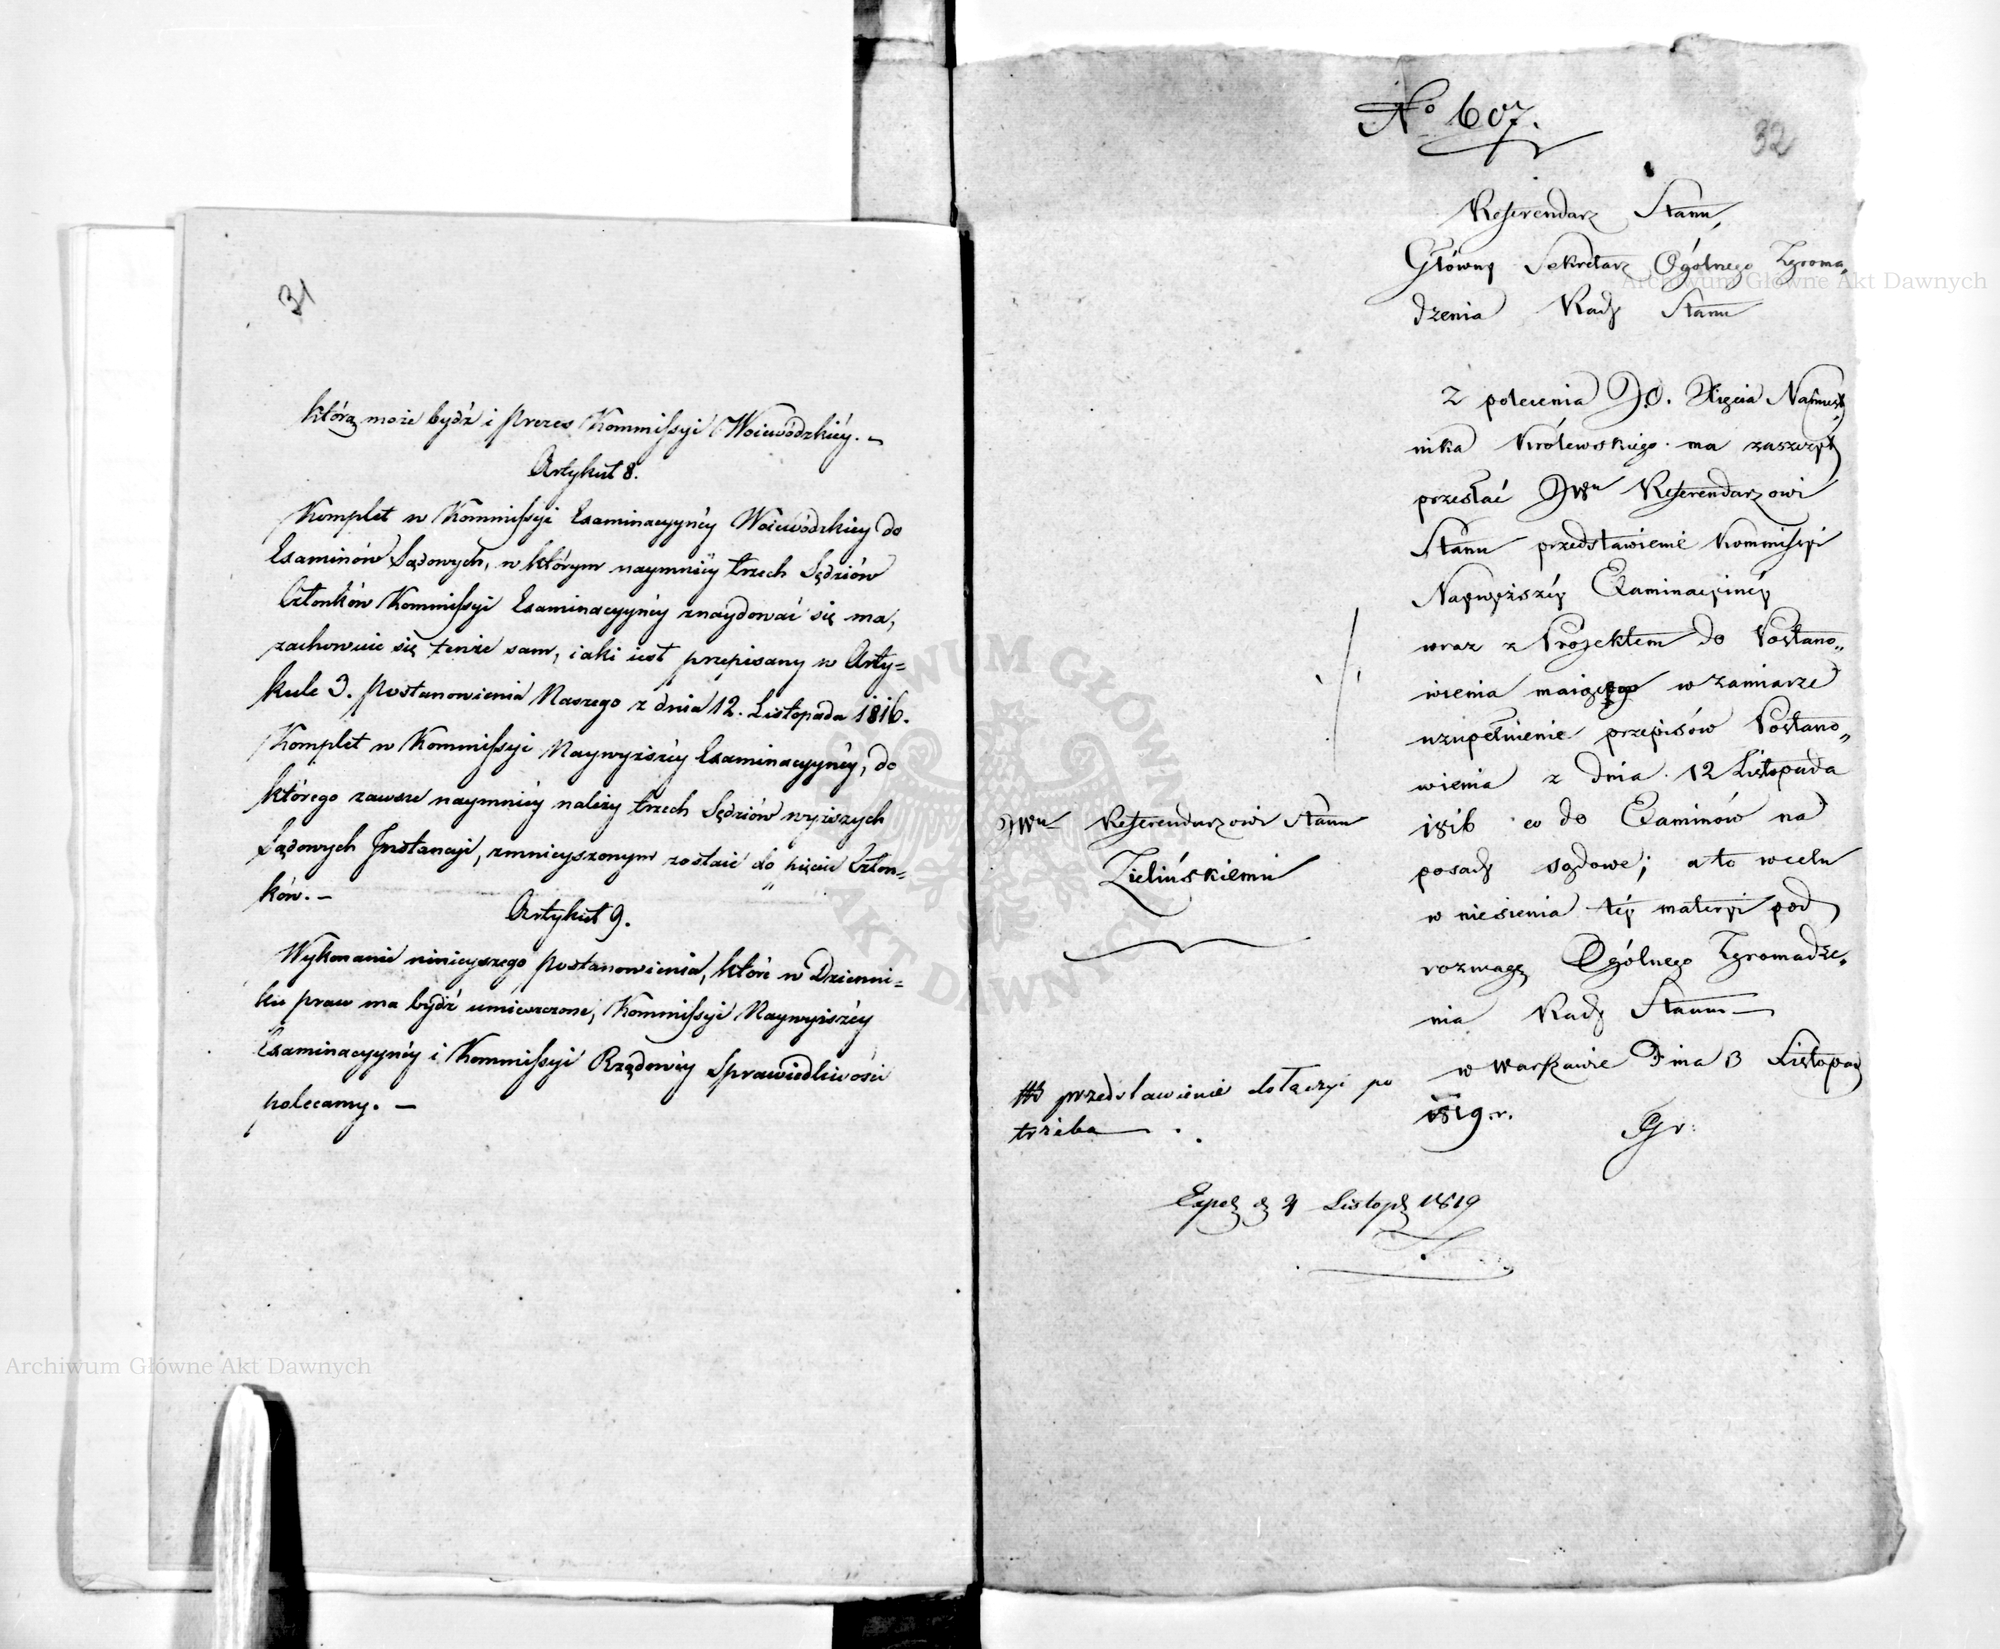 31
którą może bydź i Prezes Kommissyi Woiewódzkiéy. –
Artykuł 8.
Komplet w Kommissyi Examinacyynéy Woiewódzkiey do
Examinów Sądowych, w którym naymniéy trzech Sędziów
Członków Kommissyi Examinacyynéy znaydować się ma,
zachowuie się tenże sam, iaki iest przepisany w Arty=
kule 3. Postanowienia Naszego z dnia 12. Listopada 1816.
Komplet w Kommissyi Naywyższéy Examinacyynéy, do
którego zawsze naymniéy należy trzech Sędziów wyższych
Sądowych Instancji, zmnieyszonym zostaie do pięciu Człon=
ków. –
Artykuł 9.
Wykonanie ninieyszego postanowienia, które w Dzienni=
ku praw ma bydź umieszczone, Kommissyi Naywyższéy
Examinacyynéy i Kommissyi Rządowéy Sprawiedliwości
polecamy. –
No 607.
32
Referendarz Stanu,
Główny Sekretarz Ogólnego Zgroma„
dzenia Rady Stanu
Z polecenia J.O. Xięcia Namiest
nika Królewskiego ma zaszczyt
przesłać JWu Referendarzowi
Stanu przedstawienie Kommissyi
Naywyższéy Examinacyinéy
wraz z Projektem do Postano„
wienia w zamiarze
uzupełnienie przepisów Postano„
wienia z dnia 12 Listopada
1816 co do Examinów na
posady sądowe; a to w celu
wniesienia téy materyi pod
rozwagę Ogólnego Zgromadze„
nia Rady Stanu
w Warszawie Dnia 3 Listopad
1819.r.
Gr:
JWu Referendarzowi Stanu
Zielińskiemu
przedstawienie dołączyć po
trzeba
Exped d 4 Listopd 1819
Archiwum Główne Akt Dawnych
Archiwum Główne Akt Dawnych
ARCHIWUM GŁÓWNE AKT DAWNYCH